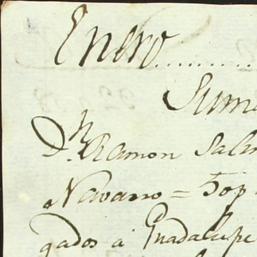 Enero..........
Sum
Dn. Ramon Sala
Navarro = Top
gados a Guadalupe